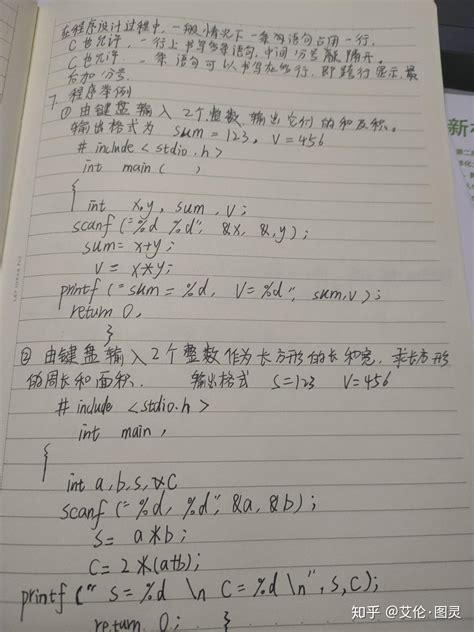 在程序设计过程中,一般情况下一条语句占用一行,
C也允许,一行上书写多条语句,中间分号隔开。
C也允许,一条语句可以书写在多行,即跨行显示,最
后加分号.
7. 程序举例
① 由键盘输入2个整数,输出它们的和及积。
输出格式为 sum=123, V=456
# include <stdio.h>
int main ( )
{
int x,y, sum, v;
scanf("%d %d", &x, &,y);
sum= x+y;
v = x*y;
printf("sum=%d, V=%d", sum,v);
return 0,
}
② 由键盘输入2个整数作为长方形的长和宽,求长方形
的周长和面积. 输出格式 S=123 V=456
# include <stdio.h>
int main,
{
int a,b,s, C
scanf("%d, %d", &a, &b);
s= a*b;
C= 2*(a+b);
printf(" s=%d \n C=%d \n", s,C);
return 0; }
新
知乎 @艾伦·图灵